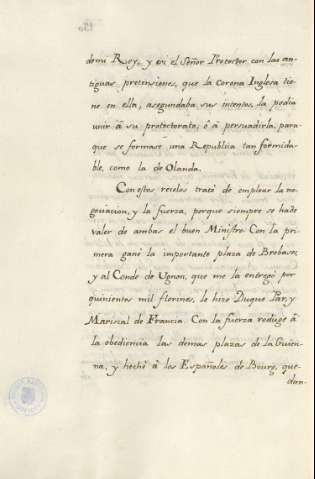 de mi Rey, y si el Señor Protector con las an-
tiguas pretensiones, que la Corona Inglesa tie-
ne en ella, asegundaba sus intentos, la podia
unir â su protectorato, ô â persuadirla, para
que se formase una Republica tan formida-
ble, como la de Olanda.
Con estos recelos traté de emplear la ne-
gociacion, y la fuerza, porque siempre se hade
valer de ambas el buen Ministro. Con la pri-
mera gané la importante plaza de
y al Conde de Ugnon, que me la entregó por
quinientos mil florines, le hize Duque Par, y
Mariscal de Francia. Con la fuerza reduge â
la obediencia las demas plazas de la Guie-
na, y heché â los Españoles de Bourg, que-
dan-